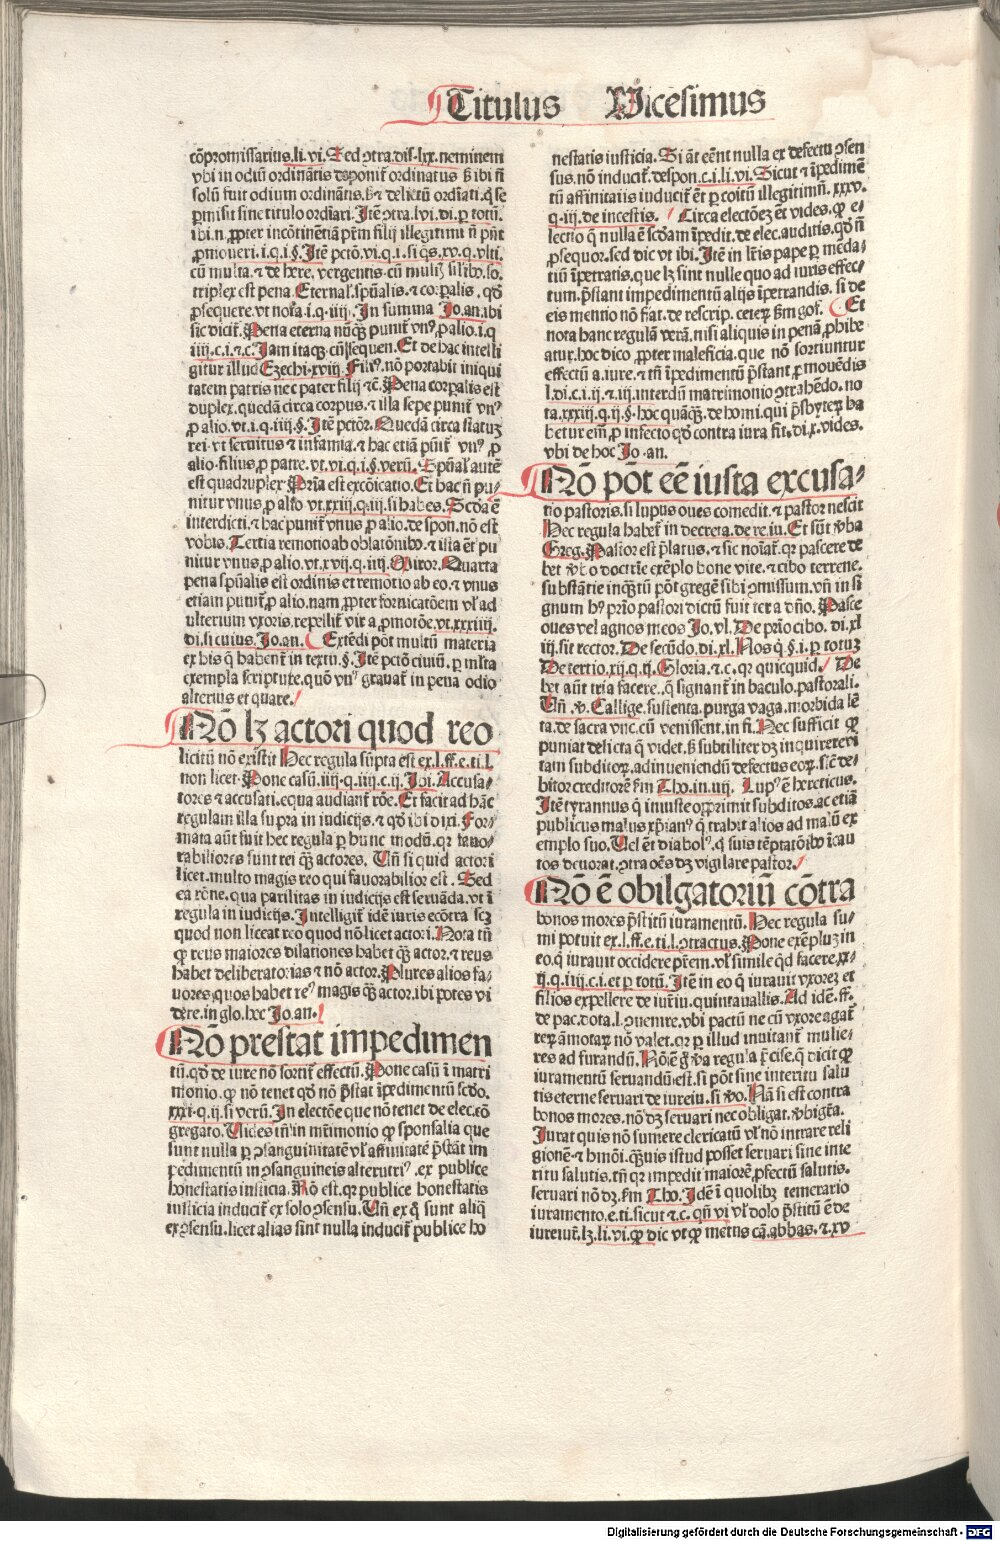 Titulus Vicesimus
cōpromissarius.li.vi. Sed ꝯtra.dis.lxx.neminem
vbi in odiū ordinātis deponit̄ ordinatus ꝫ ibi ñ
solū fuit odium ordinātis.ꝫ ⁊ delictū ordīati.ꝙ se
ꝑmisit sine titulo ordīari. Itē ꝯtra.lvi.di.ꝑ totū.
ibi.n.ꝓpter incōtinētiā pr̄m filij illegitimi ñ pn̄t
ꝓmoueri.i.q.i.§. Itē pctō.vi.q.i.si qs.xv.q.vlti.
cū multa.⁊ de here.vergentis.cū
triplex est pena. Eternal.spūalis.⁊ corꝑalis.qd
ꝓsequere.vt nota.i.q.iiij. In summa Jo.an.ibi
sic dicit. Pena eterna nūqꝫ punit̄ vnꝰ ꝓ alio.i.q
iiij.c.i.⁊.c. Jam itaqꝫ Et de hac intelli
gitur illud Ezechi.xviij. Filiꝰ nō portabit iniqui
tatem patris nec pater filij ⁊c̄. Pena corꝑalis est
duplex.quedā circa corpus.⁊ illa sepe punit̄ vnꝰ
ꝓ alio.vt.i.q.iiij.§. Itē pctōr. Quedā circa statuꝫ
rei.vt seruitus ⁊ infamia.⁊ hac etiā pūit̄ vnꝰ ꝓ
alio.filius ꝓ patre.vt.vi.q.i.§.verū. Spūal' autē
est quadruplex. Pria est excōicatio. Et hac ñ pu-
nitur vnus ꝓ alio.vt.xxiij.q.iij.si habes. Scda ē
interdicti.⁊ hac punit̄ vnus ꝓ alio.de spon.nō est
vobis. Tertia remotio ab oblatōnibꝰ.⁊ ista ēt pu
nitur vnus ꝓ alio.vt.xvij.q.iiij. Miror. Quarta
pena spūalis est ordinis et remotio ab eo.⁊ vnus
etiam punit̄ ꝓ alio.nam ꝓpter fornicatōem vl' ad
ulterium vxoris.repellit̄ vir a ꝓmotōe.vt.xxxiiij.
di.si cuius. Jo.an. Extēdi pōt multū materia
ex his q̄ habent̄ in textu.§. Itē pctō ciuiū.ꝑ ml'ta
exempla scripture.quō vnꝰ grauat̄ in pena odio
alterius et quare.
Nō lꝫ actori quod reo
licitū nō existit Hec regula sūpta est ex.l.ff.e.ti.l.
non licet. Pone casū.iiij.q.iiij.c.ij. Ibi. Accusa-
tores ⁊ accusati.equa audiant̄ rōe. Et facit ad hāc
regulam illa supra in iudicijs.⁊ qd ibi dixi. For-
mata aūt fuit hec regula ꝑ hunc modū.qꝛ fauo-
rabiliores sunt rei qꝫ actores. Vn̄ si quid actori
licet.multo magis reo qui fauorabilior est. Sed
ea rōne.qua parilitas in iudicijs est seruāda.vt ī
regula in iudicijs. Intelligit̄ idē iuris ecōtra scꝫ
quod non liceat reo quod nō licet actori. Nota tn̄
ꝙ reus maiores dilationes habet qꝫ actor.⁊ reus
habet deliberatorias ⁊ nō actor. Plures alios fa-
uores quos habet reꝰ magis qꝫ actor.ibi potes vi
dere.in glo.hec Jo.an.
Nō prestat impedimen
tū.qd de iure nō sortit̄ effectū. Pone casū ī matri
monio.ꝙ nō tenet qd nō p̄stat īpedimentū scdo.
xxxi.q.ij.si verū. In electōe que nō tenet de elec.cō
gregato. Vides tn̄ in mr̄imonio ꝙ sponsalia que
sunt nulla ꝑ ꝯsanguinitatē vl' affinitatē p̄stāt im
pedimentū in ꝯsanguineis alterutriꝰ.ex publice
honestatis iusticia. Rō est.qꝛ publice honestatis
iusticia inducit̄ ex solo ꝯsensu. Vn̄ ex q̄ sunt aliq̄
ex ꝯsensu.licet alias sint nulla inducit̄ publice ho
nestatis iusticia. Si āt eēnt nulla ex defectu ꝯsen
sus.nō inducit̄.despon.c.i.li.vi. Sicut ⁊ īpedimē
tū affinitatis iuducit̄ ēt ꝑ coitū illegitimū.xxxv.
q.iij.de incestis. Circa electōeꝫ ēt vides.ꝙ e-
lectio q̄ nulla ē scdam īpedit.de elec.auditis.qd ñ
ꝓsequor.sed dic vt ibi. Itē in lr̄is pape ꝑ mēda-
tiū īpetratis.que lꝫ sint nulle quo ad iuris effec-
tum.p̄stant impedimentū alijs īpetrandis.si de
eis mentio nō fiat.de rescrip.ceterꝫ ẜm gof. Et
nota hanc regulā verā.nisi aliquis in penā ꝓhibe
atur.hoc dico ꝓpter maleficia.que nō sortiuntur
effectū a.iure.⁊ tn̄ īpedimentū p̄stant ꝓmouēdis
l.di.c.ij.⁊.iij.interdū matrimonio ꝯtrahēdo.no
ta.xxxiij.q.ij.§.hoc quāqꝫ.de homi.qui p̄sbyteꝝ ha
betur em̄ ꝓ infecto qd contra iura fit.di.x.vides.
vbi de hoc Jo.an.
Nō pōt eē iusta excusa-
tio pastoris.si lupus oues comedit.⁊ pastor nescit
Hec regula habet̄ in decreta.de re.iu. Et sūt v̄ba
Greg. Pastor est p̄latus.⁊ sic noiāt̄.qꝛ pascere de
bet v̄bo doctrie exēplo bone vite.⁊ cibo terrene.
substātie inqꝫtū pōt gregē sibi ꝯmissum.vn̄ in si
gnum hꝰ pr̄io pastori dictū fuit ter a dn̄o. Pasce
oues vel agnos meos Jo.vl. De pr̄io cibo.di.xl
iij.sit rector. De secūdo.di.xl. Nos q̄.§.i.ꝑ totuꝫ
De tertio.xij.q.ij. Gloria.⁊.c.qꝛ quicquid. De
bet aūt tria facere.q̄ signant̄ in baculo.pastorali.
Vn̄.v̄. Collige.sustenta.purga vaga.morbida lē
ta.de sacra vnc.cū venissent.in fi. Nec sufficit ꝙ
puniat delicta q̄ videt.ꝫ subtiliter dꝫ inquirere vi
tam subditoꝝ.ad inueniendū defectus eoꝝ.sicē de-
bitor creditorē ẜm Tho.in.iiij. Lupꝰ ē hereticus.
Itē tyrannus q̄ iniuste opprimit subditos.ac etiā
publicus malus xp̄ianꝰ q̄ trahit alios ad malū ex
emplo suo. Vel ēt diabolꝰ.q̄ suis tēptatōibꝰ īcau
tos deuorat.ꝯtra oēs dꝫ vigilare pastor.
Nō ē obilgatoriū cōtra
bonos mores p̄stitū iuramentū. Hec regula su-
mi potuit ex.l.ff.e.ti.l.ꝯtractus. Pone exēpluꝫ in
eo.q̄ iurauit occidere pr̄em.vl' simile qd facere.xx-
ij.q.iiij.c.i.et ꝑ totū. Itē in eo q̄ iurauit vxoreꝫ et
filios expellere de iureiu.quintauallis. Ad idē.ff.
de pac.dota.l. vbi pactū ne cū vxore agat̄
reꝝ āmotaꝝ nō valet.qꝛ ꝑ illud inuitant̄ mulie-
res ad furandū. Nōīē ḡ v̄a regula p̄cise.q̄ dicit ꝙ
iuramentū seruandū est.si pōt sine interitu salu
tis eterne seruari de iureiu.si v̄o. Nā si est contra
bonos mores.nō dꝫ seruari nec obligat.
Jurat quis nō sumere clericatū vl' nō intrare reli
gionē.⁊ hmōi.qꝫuis istud posset seruari sine inte
ritu salutis.tn̄ qꝛ impedit maiorē ꝓfectū salutis.
seruari nō dꝫ.ẜm Tho. Idē ī quolibꝫ temerario
iuramento.e.ti.sicut ⁊.c.qn̄ vi vl' dolo p̄stitū ē de
iureiur.lꝫ.li.vi.ꝙ dic vt ꝙ metus cā.abbas.⁊.xv
Digitalisierung gefördert durch die Deutsche Forschungsgemeinschaft - DFG